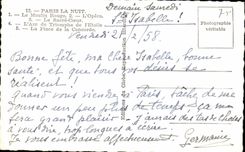 12. — PARIS LA NUIT.
1. — Le Moulin Rouge. 2. — L'Opéra.
3. — Le Sacré-Cœur.
4. — L'Arc de Triomphe de l'Etoile
5. — La Place de la Concorde.
Demain Samedi
Isabelle !
Vendredi 2/58.
Photographie véritable
Bonne fête, ma chère Isabelle, bonne
santé, et que tous vos désirs se
réalisent !
Quand vous viendrez à Paris, tâche de me
donner un peu plus de temps, ça me
sera grand plaisir
vous dire trop longues à écrire.
Je vous embrasse affectueusement
Germaine